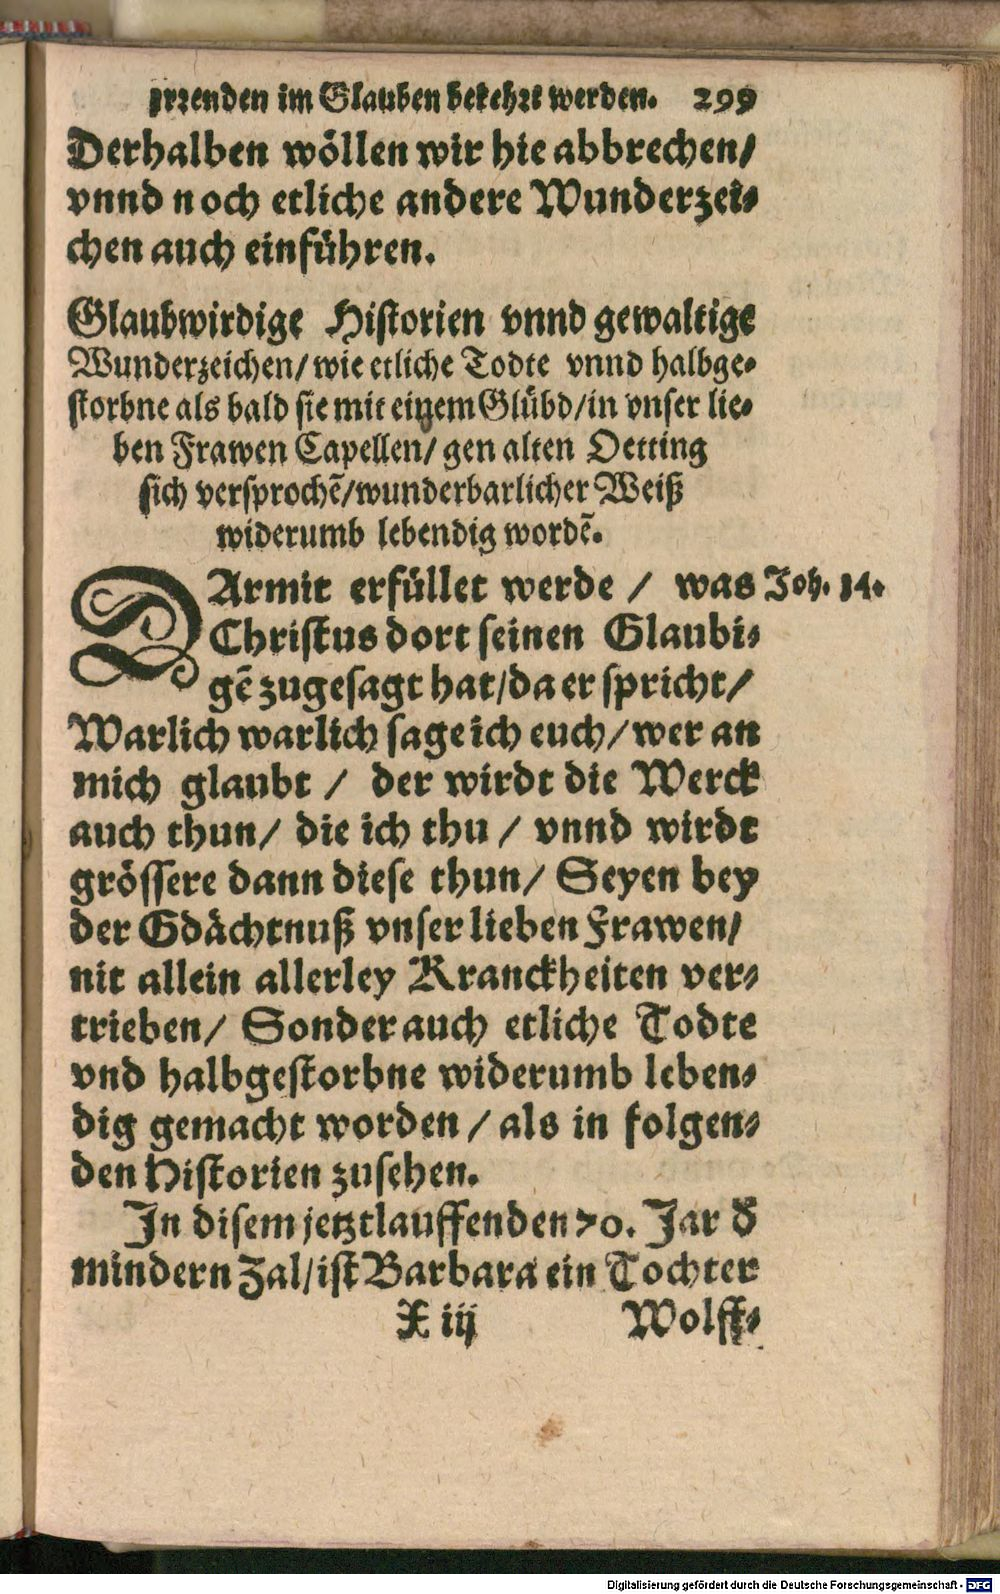 irrenden im Glauben bekehrt werden. 299
Derhalben wöllen wir hie abbrechen/
vnnd noch etliche andere Wunderzei-
chen auch einführen.
Glaubwirdige Historien vnnd gewaltige
Wunderzeichen/ wie etliche Todte vnnd halbge-
storbne als bald sie mit einem Glübd/ in vnser lie-
ben Frawen Capellen/ gen alten Oetting
sich versprochē/ wunderbarlicher Weiß
widerumb lebendig wordē.
DArmit erfüllet werde / was Joh. 14.
Christus dort seinen Glaubi-
gē zugesagt hat/ da er spricht/
Warlich warlich sage ich euch/ wer an
mich glaubt / der wirdt die Werck
auch thun/ die ich thu / vnnd wirdt
grössere dann diese thun/ Seyen bey
der Gdächtnuß vnser lieben Frawen/
nit allein allerley Kranckheiten ver-
trieben/ Sonder auch etliche Todte
vnd halbgestorbne widerumb leben-
dig gemacht worden / als in folgen-
den Historien zusehen.
In disem jetztlauffenden 70. Jar d̄
mindern Zal/ ist Barbara ein Tochter
X iij Wolff-
Digitalisierung gefördert durch die Deutsche Forschungsgemeinschaft - DFG